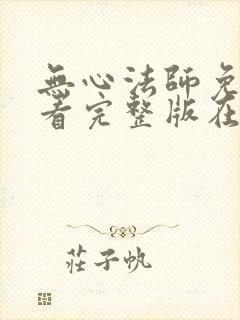 無心法師免
看完整版在
莊子帆